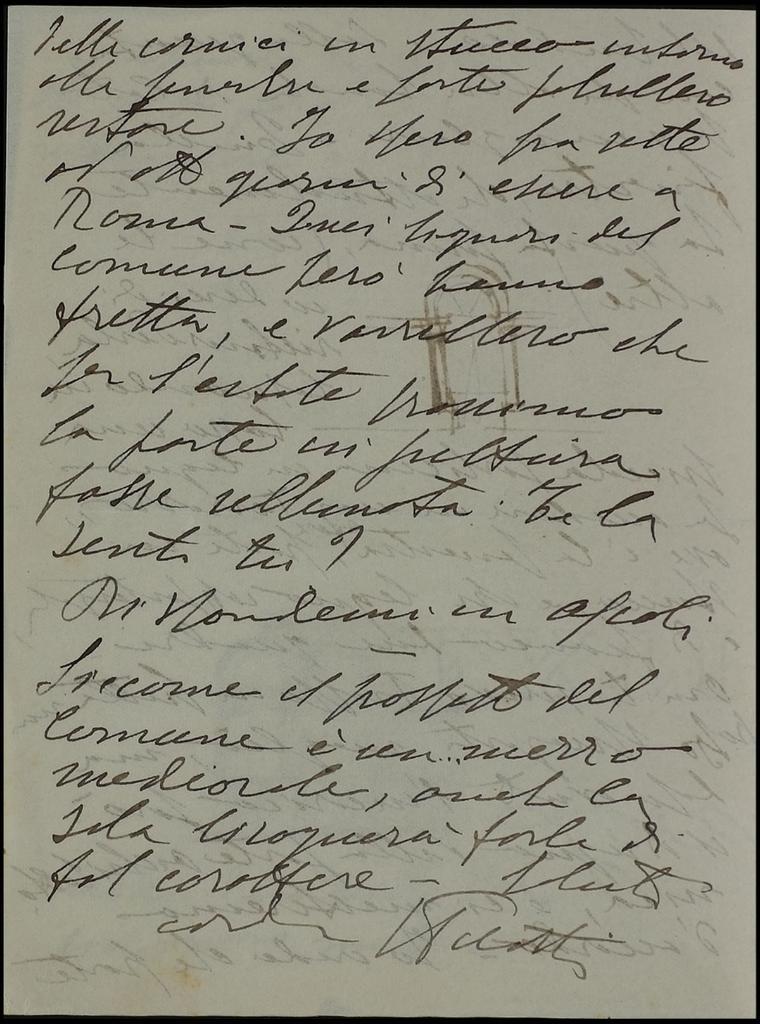 delle cornici in stucco intorno
alle finestre e forte potrebbero
restare. Io spero fra sette
od otto giorni di essere a
Roma - Quei signori del
comune però hanno
fretta, e vorrebbero che
per l'estate prossimo
la parte in pittura
fosse ultimata. Te la
senti tu?
Rispondemi in Ascoli
Siccome il prospetto del
Comune è un mezzo
medioevale, anche la
sala bisognerà farla di
tal carattere - Saluti